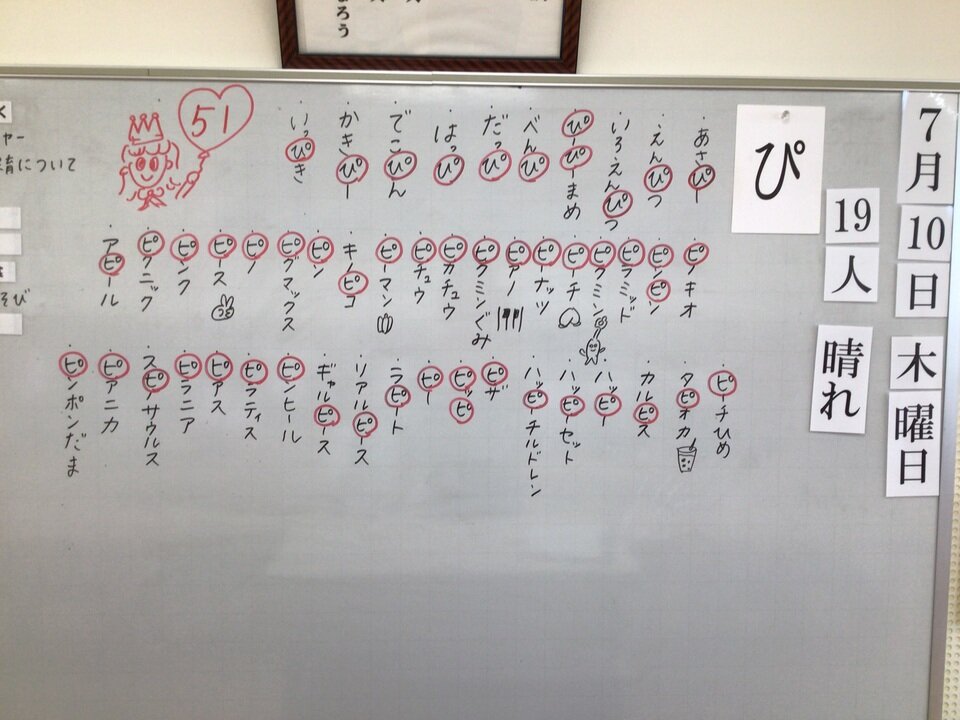 ろう
7月10日木曜日
19人晴れ
ぴ
・あさぴー
・えんぴつ
・いろえんぴつ
・ぴーぴーまめ
・べんぴ
・だっぴ
・はっぴ
・でこぴん
・かきぴー
・いっぴき
51
・ピノキオ
・ピンピン
・ピラミッド
・ピクミン
・ピーチ
・ピーナッツ
・ピアノ
・ピクミンぐみ
・ピカチュウ
・ピチュウ
・ピーマン
・キノピコ
・ピン
・ピグマックス
・ピノ
・ピース
・ピンク
・ピクニック
・アピール
・ピーチひめ
・タピオカ
・カルピス
・ハッピー
・ハッピーセット
・ハッピーチルドレン
・ピザ
・ピッピ
・ピー
・ラピート
・リアルピース
・ギャルピース
・ピンヒール
・ピラティス
・ピアス
・ピラニア
・スピノサウルス
・ピアニカ
・ピンポンだま
く
ャー
育について
そび